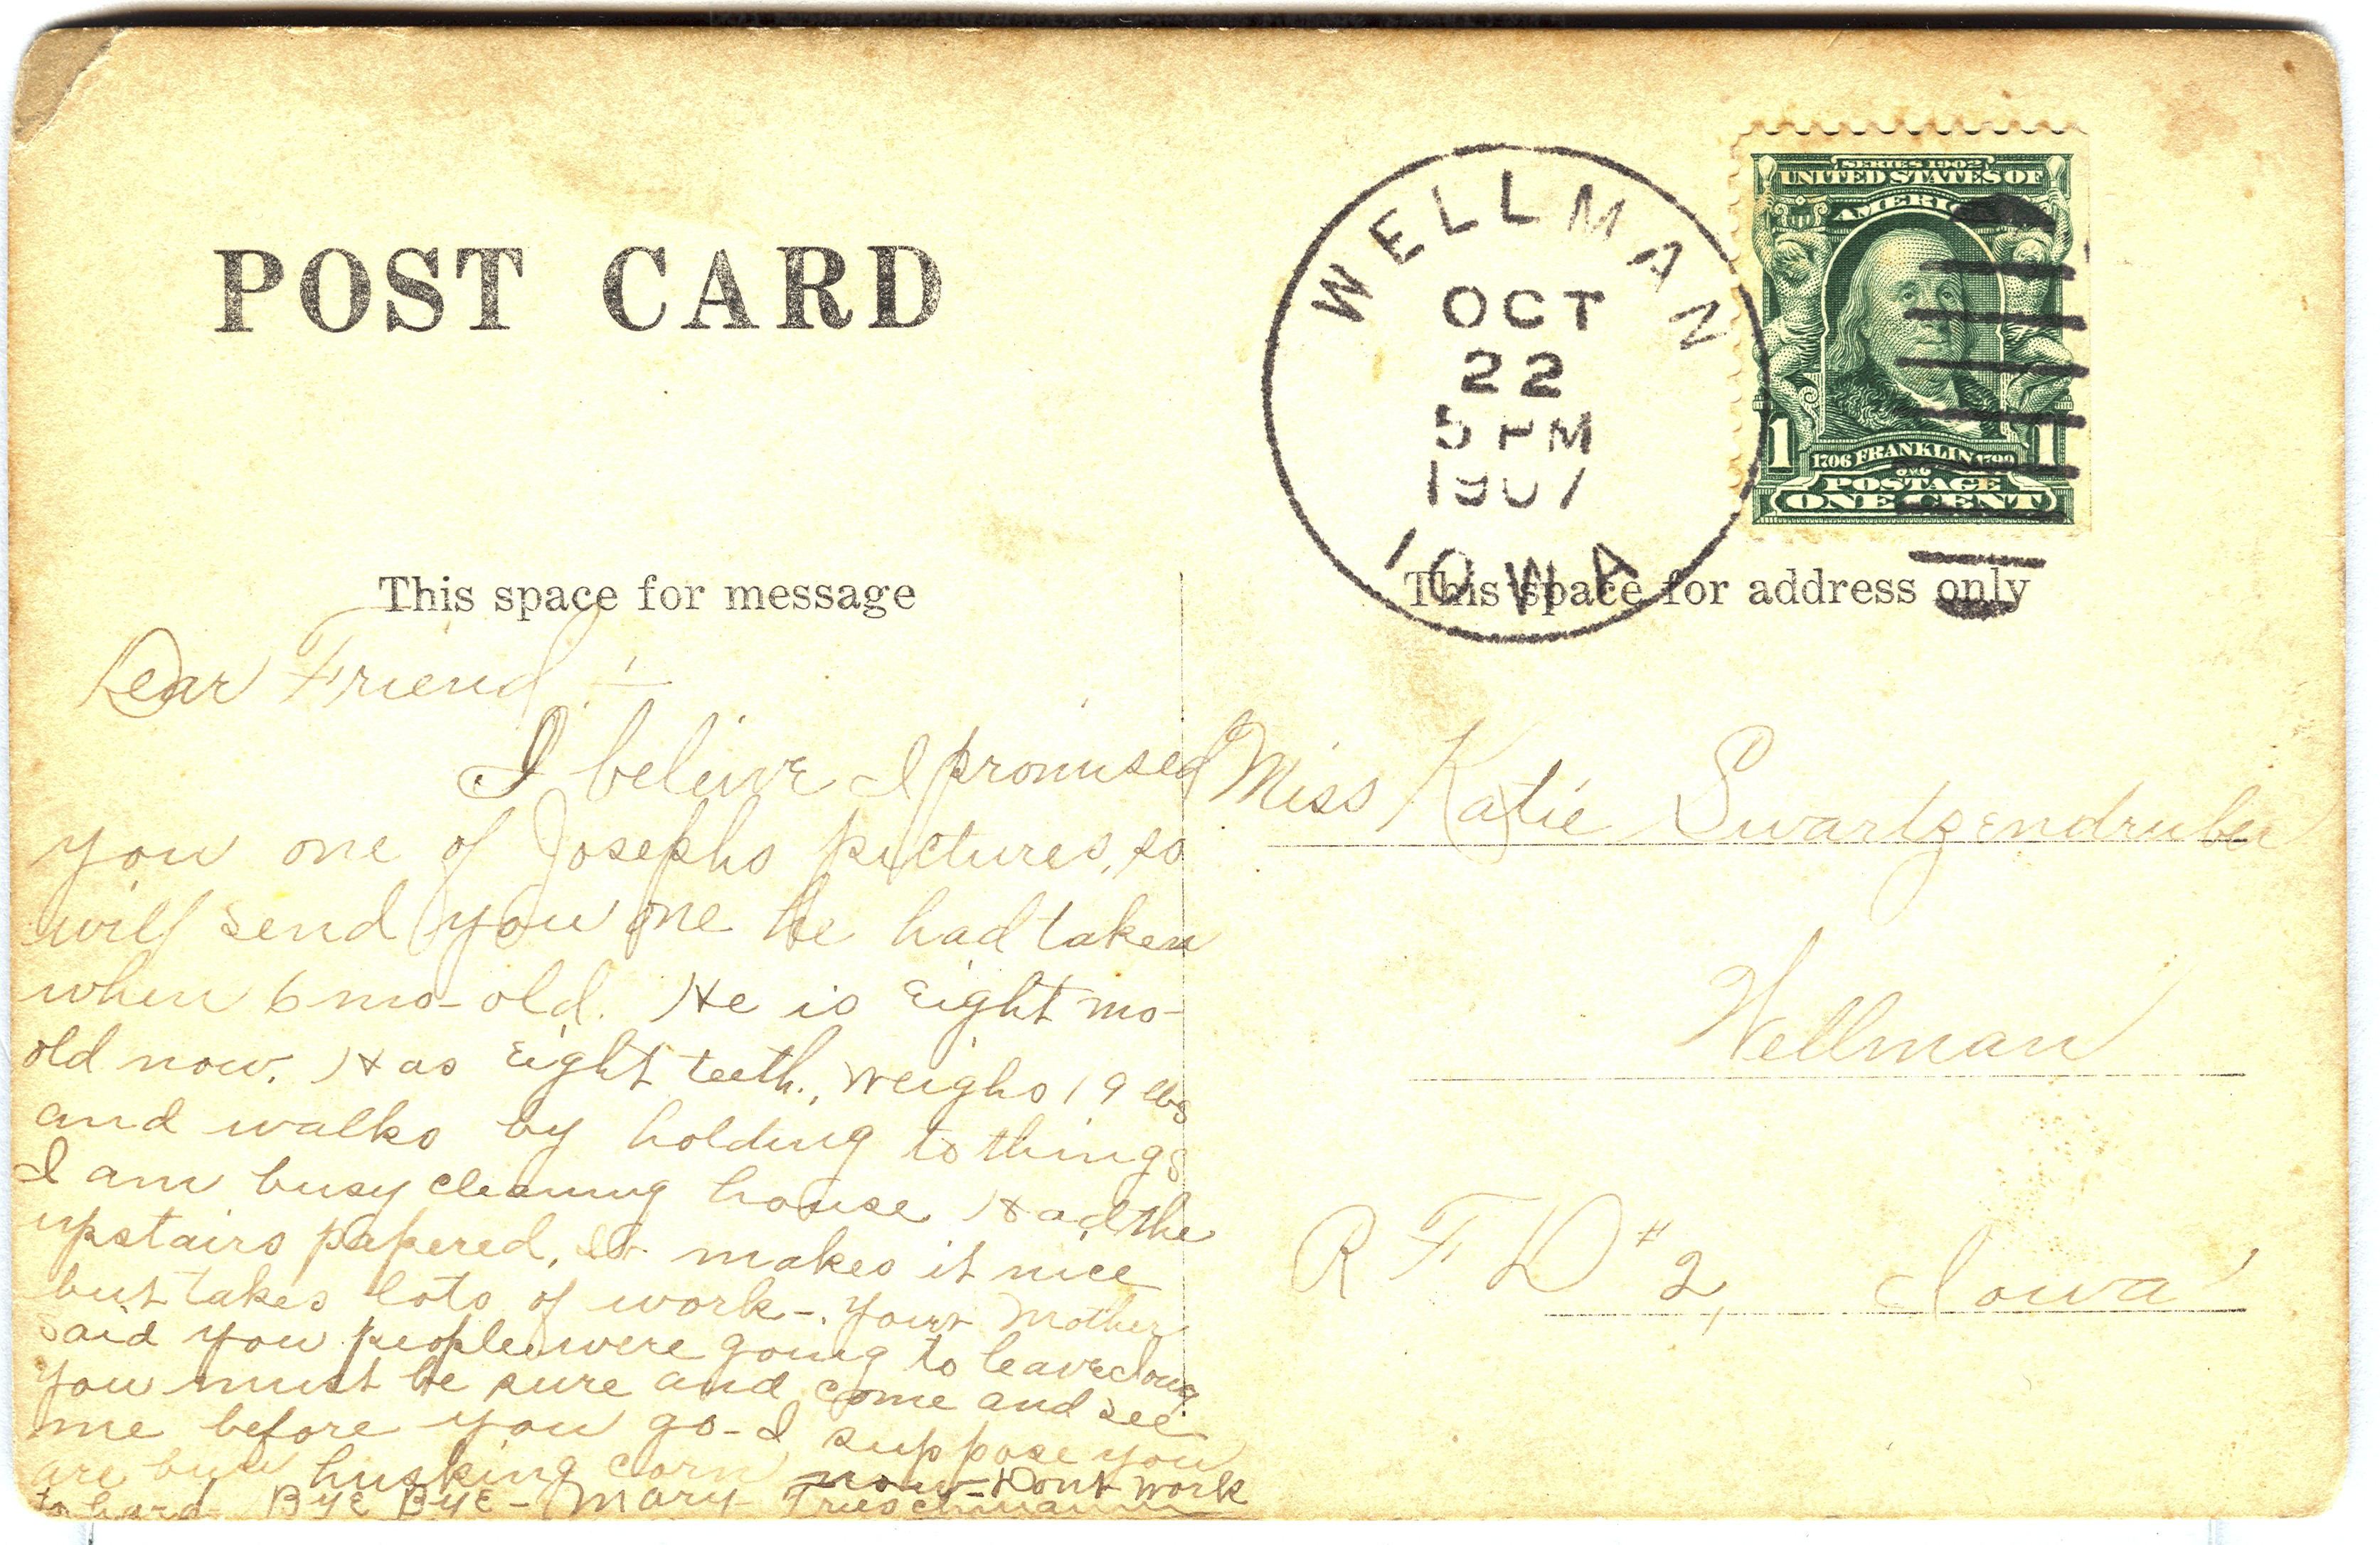 POST CARD
WELLMAN
OCT
22
5 PM
1907
IOWA
SERIES 1902
UNITED STATES OF
AMERICA
1706 FRANKLIN 1790
1 1
POSTAGE
ONE CENT
This space for message
This space for address only
Dear Friend :-
I beleive I promised
you one of Josephs pictures, so
will send you one he had taken
when 6 mo- old. He is Eight mo-
old now. Has Eight teeth., weighs 19 lbs
and walks by holding to things
I am busy cleaning house Had the
upstairs papered, It makes it nice
but takes lots of work-. Your Mother
said you people were going to leave
You must be sure and come and see
me before you go- I suppose you
are husking corn now- Dont work
to hard Bye Bye- Mary Trieschmann
Miss Katie Swartzendruber
Wellman
R F D # 2, Iowa